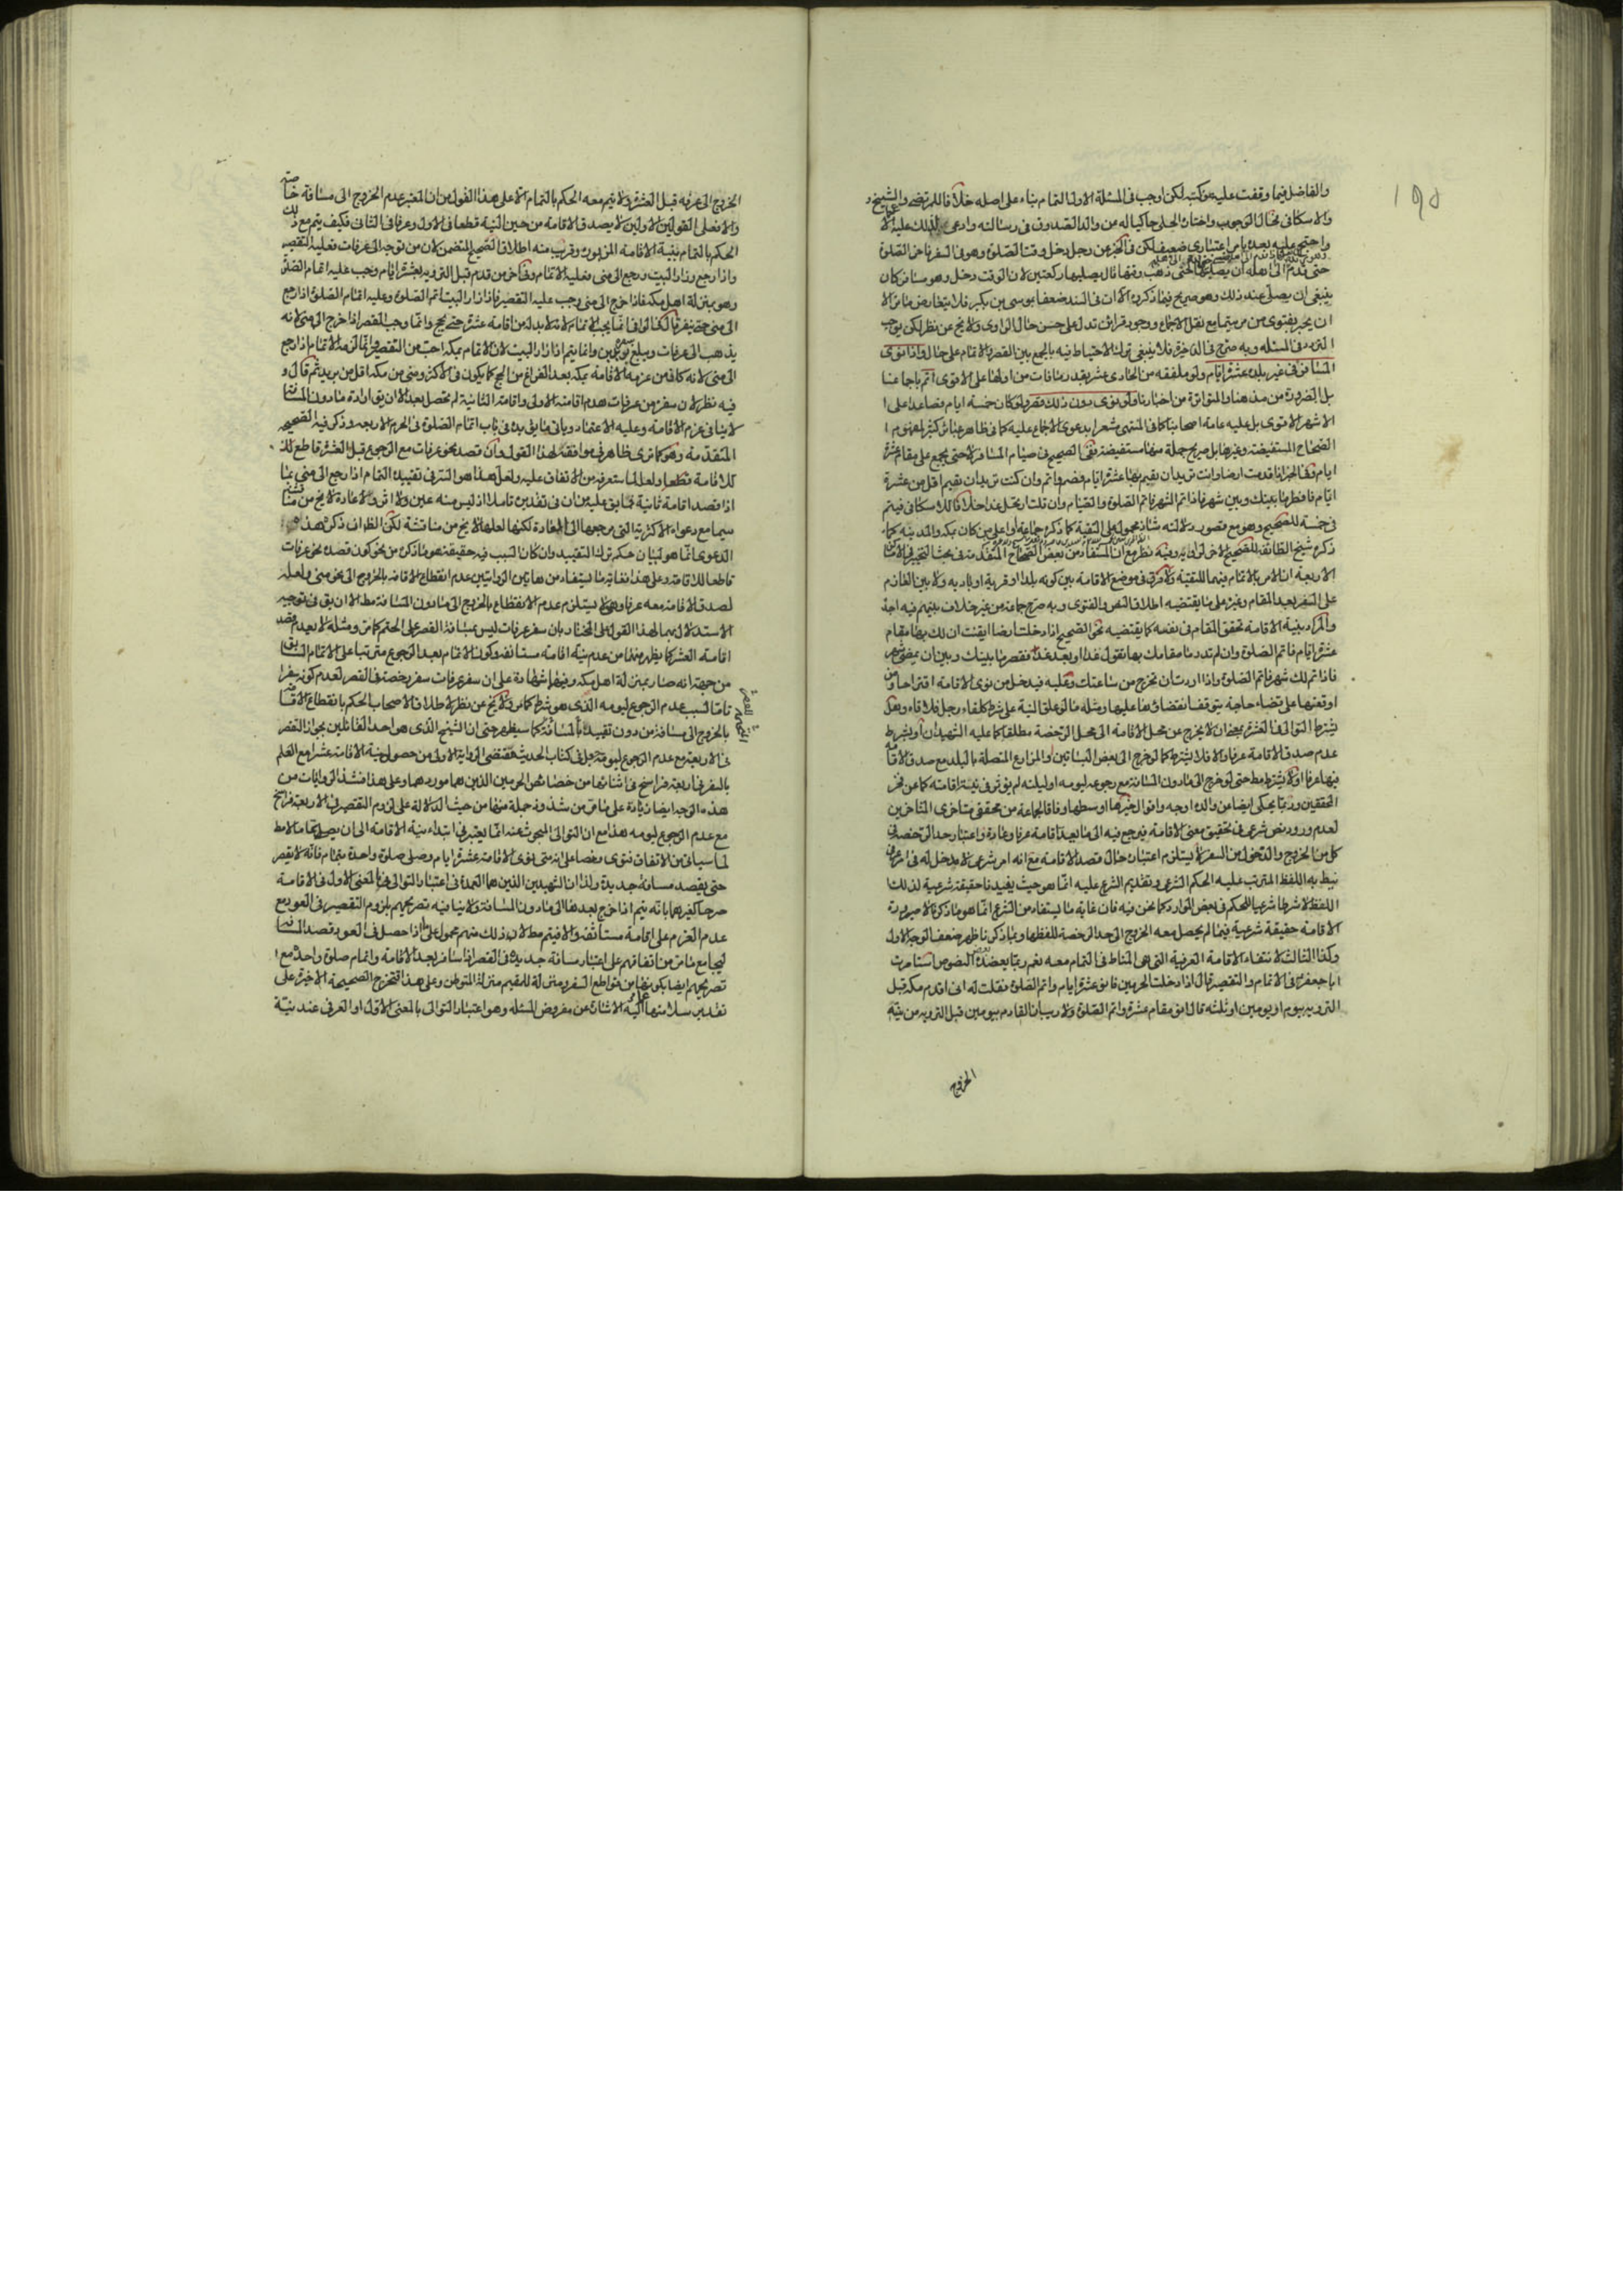 والفاضل فيما وقفت عليه من كتبه لكن اوجب فى المسئلة الاولى التمام بناء على اصله خلافا للمرتضى والشيخ
والاسكافى فخالا الوجوب واختاره الحلى حاكيا له عن والد الصدوق فى رسالته وادعى
واحتج عليه بعده باعتبارى ضعيف لكن فى الخبر عن رجل دخل وقت الصلوة وهو فى السفر فاخر الصلوة
حتى قدم الى اهله ان يصليها حتى ذهب وقتها قال يصليها ركعتين لان الوقت دخل وهو مسافر كان
ينبغى ان يصلى عند ذلك وهو صريح فيما ذكروه الا ان فى السند ضعفا بموسى بن بكير فلا يعارض مامر الا
ان يجبر بفتوى من مر سيما مع نقل الاجماع ووجود قرائن تدل على حسن حال الراوى ولا يخ عن نظر لكن يوجب
التردد فى المسئلة وبه صرح فى الذخيرة فلا ينبغى ترك الاحتياط فيه بالجمع بين القصر والاتمام على حال واذا نوى
المسافر فى غير بلده عشرة ايام ولو ملفقه من الحادى عشر بقدر ما فات من اولها على الاقوى اتم باجماعنا
بل الضرورة من مذهبنا والمتواترة من اخبارنا ولو نوى دون ذلك قصر ولو كان خمسة ايام فصاعدا على ا
الاشهر الاقوى بل عليه عامة اصحابنا كما فى المنتهى مشعرا بدعوى الاجماع عليه كما فى ظاهر عبائر كثير لمفهوم ا
الصحاح المستفيضة وغيرها بل صريح جملة منها مستفيضة ففى الصحيح فى صيام المسافر لا حتى يجمع على مقام عشرة
ايام وفى اخر اذا قدمت ارضا وانت تريد ان تقيم بها عشرة ايام فصم واتم وان كنت تريد ان تقيم اقل من عشرة
ايام فافطر ما بينك وبين شهر فاذا تم الشهر فاتم الصلوة والصيام وان قلت ارتحل غدا خلافا للاسكافى فيتم
فى خمسة للصحيح وهو مع قصور دلالته شاذ محمول على التقية كما ذكره جماعة او على من كان بمكه والمدينه كما
ذكره شيخ الطائفة للصحيح الاخر لراويه وفيه نظر مع ان المستفاد من بعض الصحاح المتقدمة فى بحث التخيير فى الاماكن
الاربعة ان الامر بالاتمام فيهما للتقية ولا فرق فى موضع الاقامة بين كونه بلدا او قرية او بادية ولا بين العازم
على السفر بعد المقام وغيره على ما يقتضيه اطلاق النص والفتوى وبه صرح جماعة من غير خلاف بينهم فيه اجده
والمراد بنية الاقامة تحقق المقام فى نفسه كما يقتضيه نحو الصحيح اذا دخلت ارضا ايقنت ان لك بها مقام
عشرة ايام فاتم الصلوة وان لم تدر ما مقامك بها تقول غدا او بعد غد فقصر ما بينك وبين ان يمضى شهر
فاذا تم لك شهر فاتم الصلوة واذا اردت ان تخرج من ساعتك وعليه فيدخل من نوى الاقامة اقتراحا ومن
اوقعها على قضاء حاجة يتوقف انقضاؤها عليها ومثله ما لو علق النية على شرط كلقاء رجل فلاقاه وهل
يشترط التوالى فى العشرة بمعنى ان لا يخرج من محل الاقامة الى محل الرخصة مطلقا كما عليه الشهيدان او بشرط
عدم صدق الاقامة عرفا والا فلا يشترط كما لو خرج الى بعض البساتين او المزارع المتصلة بالبلد مع صدق الاقامة
فيها عرفا او لا يشترط مط حتى لو خرج الى ما دون المسافة مع رجوعه ليومه او ليلته لم يؤثر فى نية اقامته كما عن فخر
المحققين وربما يحكى ايضا عن والده اوجه واقوال خيرها اوسطها وفاقا لجماعة من محققى متاخرى المتاخرين
لعدم ورود نص شرعى فى تحقيق معنى الاقامة فيرجع فيه الى ما يعد اقامة عرفا وعادة واعتبار حد الرخصة فى
كل من الخروج والدخول من السفر لا يستلزم اعتباره حال قصد الاقامة مع انه امر شرعى لا مدخل له فى امر عرفى
نيط به اللفظ المترتب عليه الحكم الشرعى وتقديم الشرع عليه انما هو حيث يفيدنا حقيقة شرعية لذلك
اللفظ لا شرطا شرعيا للحكم فى بعض الموارد كما نحن فيه فان غاية ما يستفاد من الشرع انما هو ما ذكرنا لا صيرورة
الاقامة حقيقة شرعية فيما لم يحصل معه الخروج الى حد الرخصة للفظها وبما ذكرنا ظهر ضعف الوجه الاول
وكذا الثالث لانتفاء الاقامة العرفية التى هى المناط فى التمام معه نعم ربما يعضده بعض النصوص استامرت
ابا جعفر فى الاتمام والتقصير قال اذا دخلت الحرمين فانو عشرة ايام واتم الصلوة فقلت له انى اقدم مكه قبل
الترويه بيوم او يومين او ثلثه قال انو مقام عشرة واتم الصلوة ولا ريب ان القادم بيومين قبل الترويه من نيته
الخروج
الخروج الى عرفه قبل العشرة ولا يتم معه الحكم بالتمام الا على هذا القول من ان المعتبر عدم الخروج الى مسافة خاصة
والا فعلى القولين الاولين لا يصدق الاقامة من حين النية قطعا فى الاول وعرفا فى الثانى فكيف يتم مع ذلك
الحكم بالتمام بنية الاقامة المزبورة وقريب منه اطلاق الصحيح المتضمن لان من توجه الى عرفات فعليه التقصير
واذا رجع وزار البيت ورجع الى منى فعليه الاتمام وفى اخر من قدم قبل الترويه بعشرة ايام وجب عليه اتمام الصلوة
وهو بمنزلة اهل مكه فاذا خرج الى منى وجب عليه التقصير فاذا زار البيت اتم الصلوة وعليه اتمام الصلوة اذا رجع
الى منى حتى ينفر قال فى الوافى انما يجب الاتمام لانه لا بد له من اقامة عشرة حتى يحج وانما وجب القصر اذا خرج الى منى لانه
يذهب الى عرفات ويبلغ سفره بريدين وانما يتم اذا زار البيت لان الاتمام بمكه احب من التقصير وانما لزمه الاتمام اذا رجع
الى منى لانه كان من عزمه الاقامة بمكه بعد الفراغ من الحج كما يكون فى الاكثر ومنى من مكه اقل من بريد ثم قال و
فيه نظر لان سفره من عرفات هدم اقامته الاولى واقامته الثانية لم تحصل بعد الا ان يق ارادة ما دون المسافة
لا ينافى عزم الاقامة وعليه الاعتماد وياتى ما يؤيده فى باب اتمام الصلوة فى الحرم الاربعه وذكر فيه الصحيحه
المتقدمة وهو كما ترى ظاهر فى موافقته لهذا القول وان قصد نحو عرفات مع الرجوع قبل العشرة قاطع لك
للاقامة قطعا ولعل لما ستعرفه من الاتفاق عليه ولعل هذا هو السر فى تقييده التمام اذا رجع الى منى بما
اذا قصد اقامة ثانية
سيما مع دعواه الاكثرية التى مرجعها الى العادة لكنها لعلها لا يخ من مناقشة لكن الظ ان ذكره هذه
الدعوى انما هو لبيان حكمه ترك التقييد وان كان السبب فيه حقيقة هو ما ذكره من نحو كون قصده نحو عرفات
قاطعا للاقامة وعلى هذا فغاية ما يستفاد من هاتين الروايتين عدم انقطاع الاقامه بالخروج الى نحو منى ولعله
لصدق الاقامة معه عرفا وهى لا يستلزم عدم الانقطاع بالخروج الى ما دون المسافة مط الا ان يق فى توجيه
الاستدلال بهما لهذا القول على المختار بان سفر عرفات ليس بمسافة القصر على الحتم كما مر ومثله لا يعدم قصد
اقامة العشر كما يظهر منهما من عدم نية اقامة مستانفه وكون الاتمام بعد الرجوع مترتبا على الاتمام السابق
من جهة انه صار بمنزلة اهل مكه وفيها شهادة على ان سفر عرفات سفر رخصة فى القصر لعدم كونه سفرا
تاما لسبب عدم الرجوع ليومه الذى هو شرط كما مر ولا يخ عن نظر لاطلاق الاصحاب الحكم بانقطاع الاقامة
بالخروج الى مسافة من دون تقييد بالمسافة كما سيظهر حتى ان الشيخ الذى هو احد القائلين بجواز القصر
فى الاربعة مع عدم الرجوع ليومه جعل فى كتاب الحديث مقتضى الرواية الاولى من حصول نية الاقامة عشرا مع العلم
بالسفر فى اربعة فراسخ فى اثنائها من خصائص الحرمين الذين هما موردهما وعلى هذا فشذ الروايات من
هذه الوجه ايضا زيادة على ما مر من شذوذ جملة منها من حيث الدلالة على لزوم التقصير فى الاربعة فراسخ
مع عدم الرجوع ليومه هذا مع ان التوالى المبحوث عنه انما يعتبر فى ابتداء نية الاقامة الى ان يصلى تماما لا مط
لما سياتى من الاتفاق فتوى ونصا على انه متى نوى الاقامة عشرة ايام وصلى صلوة واحدة بتمام فانه لا يقصر
حتى يقصد مسافة جديدة ولذا ان الشهيدين الذين هما العمدة فى اعتبار التوالى بالمعنى الاول فى الاقامة
صرحا كغيرهما بانه يتم اذا خرج بعدها الى ما دون المسافة ولا ينافيه تصريحهم بلزوم التقصير فى العود مع
عدم العزم على اقامة مستانفة والا فيتم مط لان ذلك منهم محمول على ما اذا حصل فى العود قصد المسافة
ليجامع ما مر من اتفاقهم على اعتبار مسافة جديدة فى القصر اذا سافر بعد الاقامة واتمام صلوة واحدة مع ا
تصريحهم ايضا بكونها من قواطع السفر ومنزلة للمقيم منزلة المتوطن وعلى هذا فتخرج الصحيحة الاخيرة على
تقدير سلامتها عما مر اليه الاشارة عن مفروض المسئلة وهو اعتبار التوالى بالمعنى الاول او العرفى عند نية